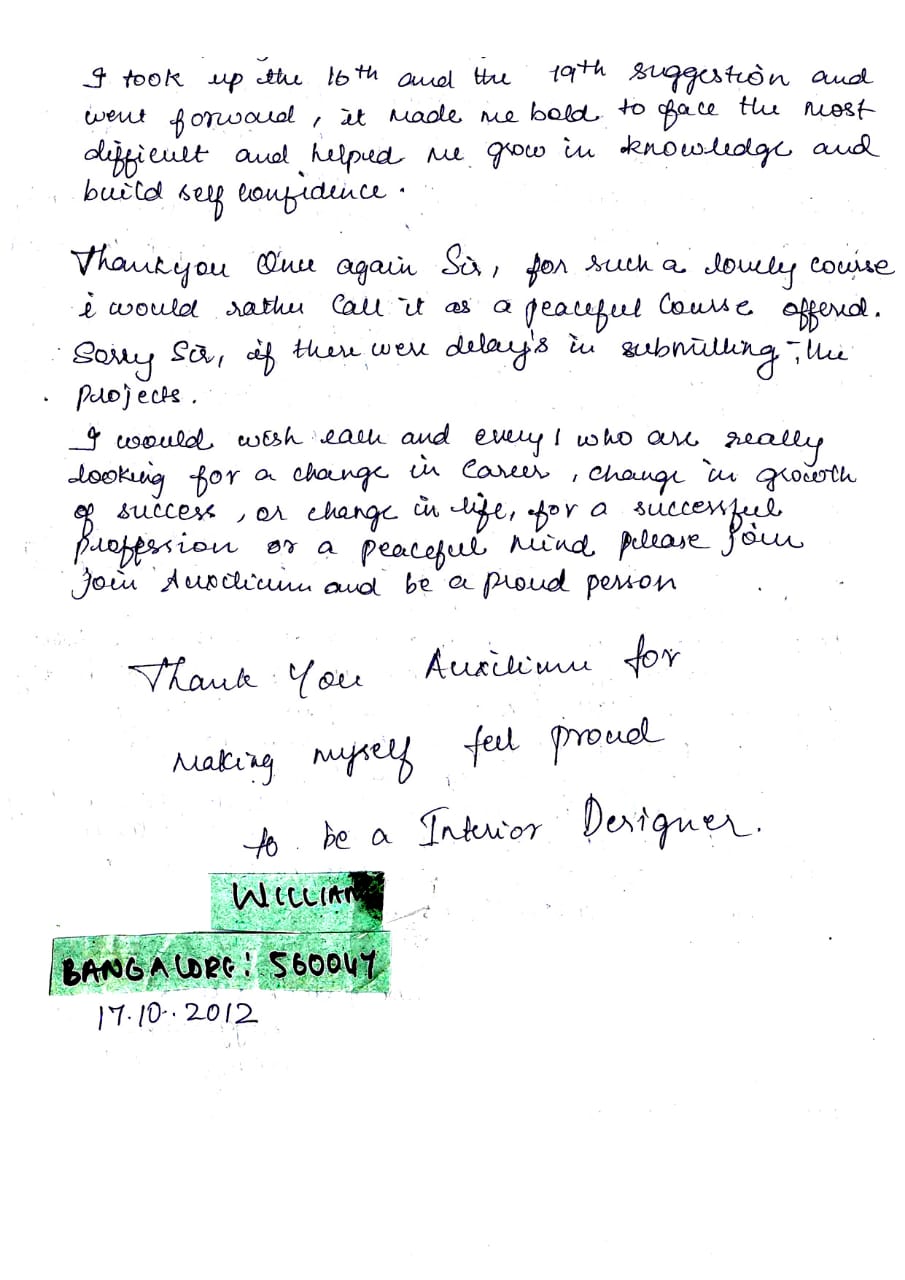 I took up the 16th and the 19th suggestion and
went forward, it made me bold to face the most
difficult and helped me grow in knowledge and
build self confidence.
Thankyou Once again Sir, for such a lovely course
i would rather Call it as a peaceful Course offered.
Sorry Sir, if there were delay's in submitting the
projects.
I would wish each and every 1 who are really
looking for a change in Career, change in growth
of success, or change in life, for a successful
proffession or a peaceful mind please join
join Auxilium and be a proud person
Thank You Auxilium for
making myself feel proud
to be a Interior Designer.
WILLIAM
BANGALORE: 560047
17.10.2012